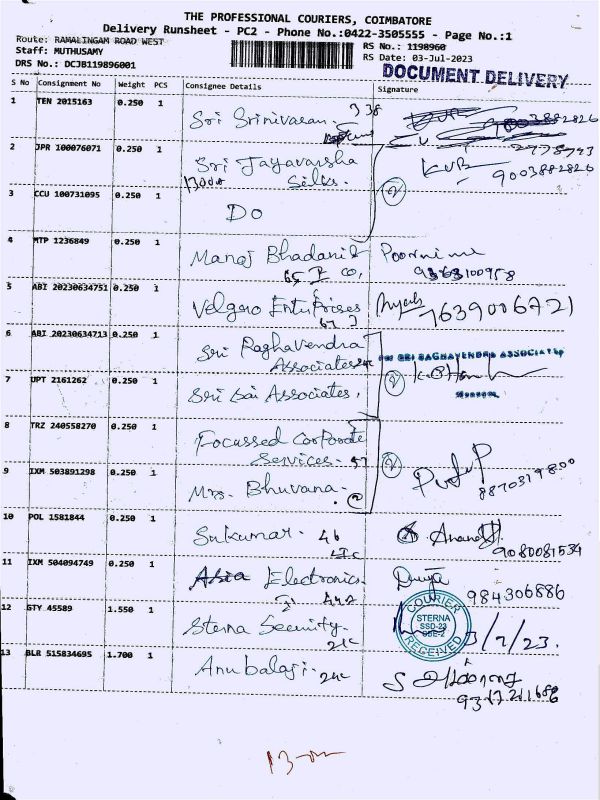 THE PROFESSIONAL COURIERS, COIMBATORE
Delivery Runsheet - PC2 - Phone No.:0422-3505555 - Page No.:1
Route: RAMALINGAM ROAD WEST
Staff: MUTHUSAMY
DRS No.: DCJB119896001
RS No.: 1198960
RS Date: 03-Jul-2023
DOCUMENT DELIVERY
S No Consignment No Weight PCS Consignee Details Signature
1 TEN 2015163 0.250 1 Sri Srinivasan. 338
9003882826
2 JPR 100076071 0.250 1 Sri Jayavarsha Silks.
KVB 9003882826
3 CCU 100731095 0.250 1 Do
4 MTP 1236849 0.250 1 Manoj Bhadani & Co,
Poornima
9363100958
5 ABI 20230634751 0.250 1 Velgro Enterprises
7639006721
6 ABI 20230634713 0.250 1 Sri Raghavendra Associates
SRI RAGHAVENDRA ASSOCIATES
7 UPT 2161262 0.250 1 Sri Sai Associates,
8 TRZ 240558270 0.250 1 Focussed Corporate Services. 57
9 IXM 503891298 0.250 1 Mrs. Bhuvana.
8870319800
10 POL 1581844 0.250 1 Sukumar. 46
Anand
9080081534
11 IXM 504094749 0.250 1 Asia Electronics
984306886
12 GTY 45589 1.550 1 Sterna Security.
COURIER
STERNA
SSD-23
RECEIVED
3/7/23.
13 BLR 515834695 1.700 1 Anubalaji.
9317211686
13-